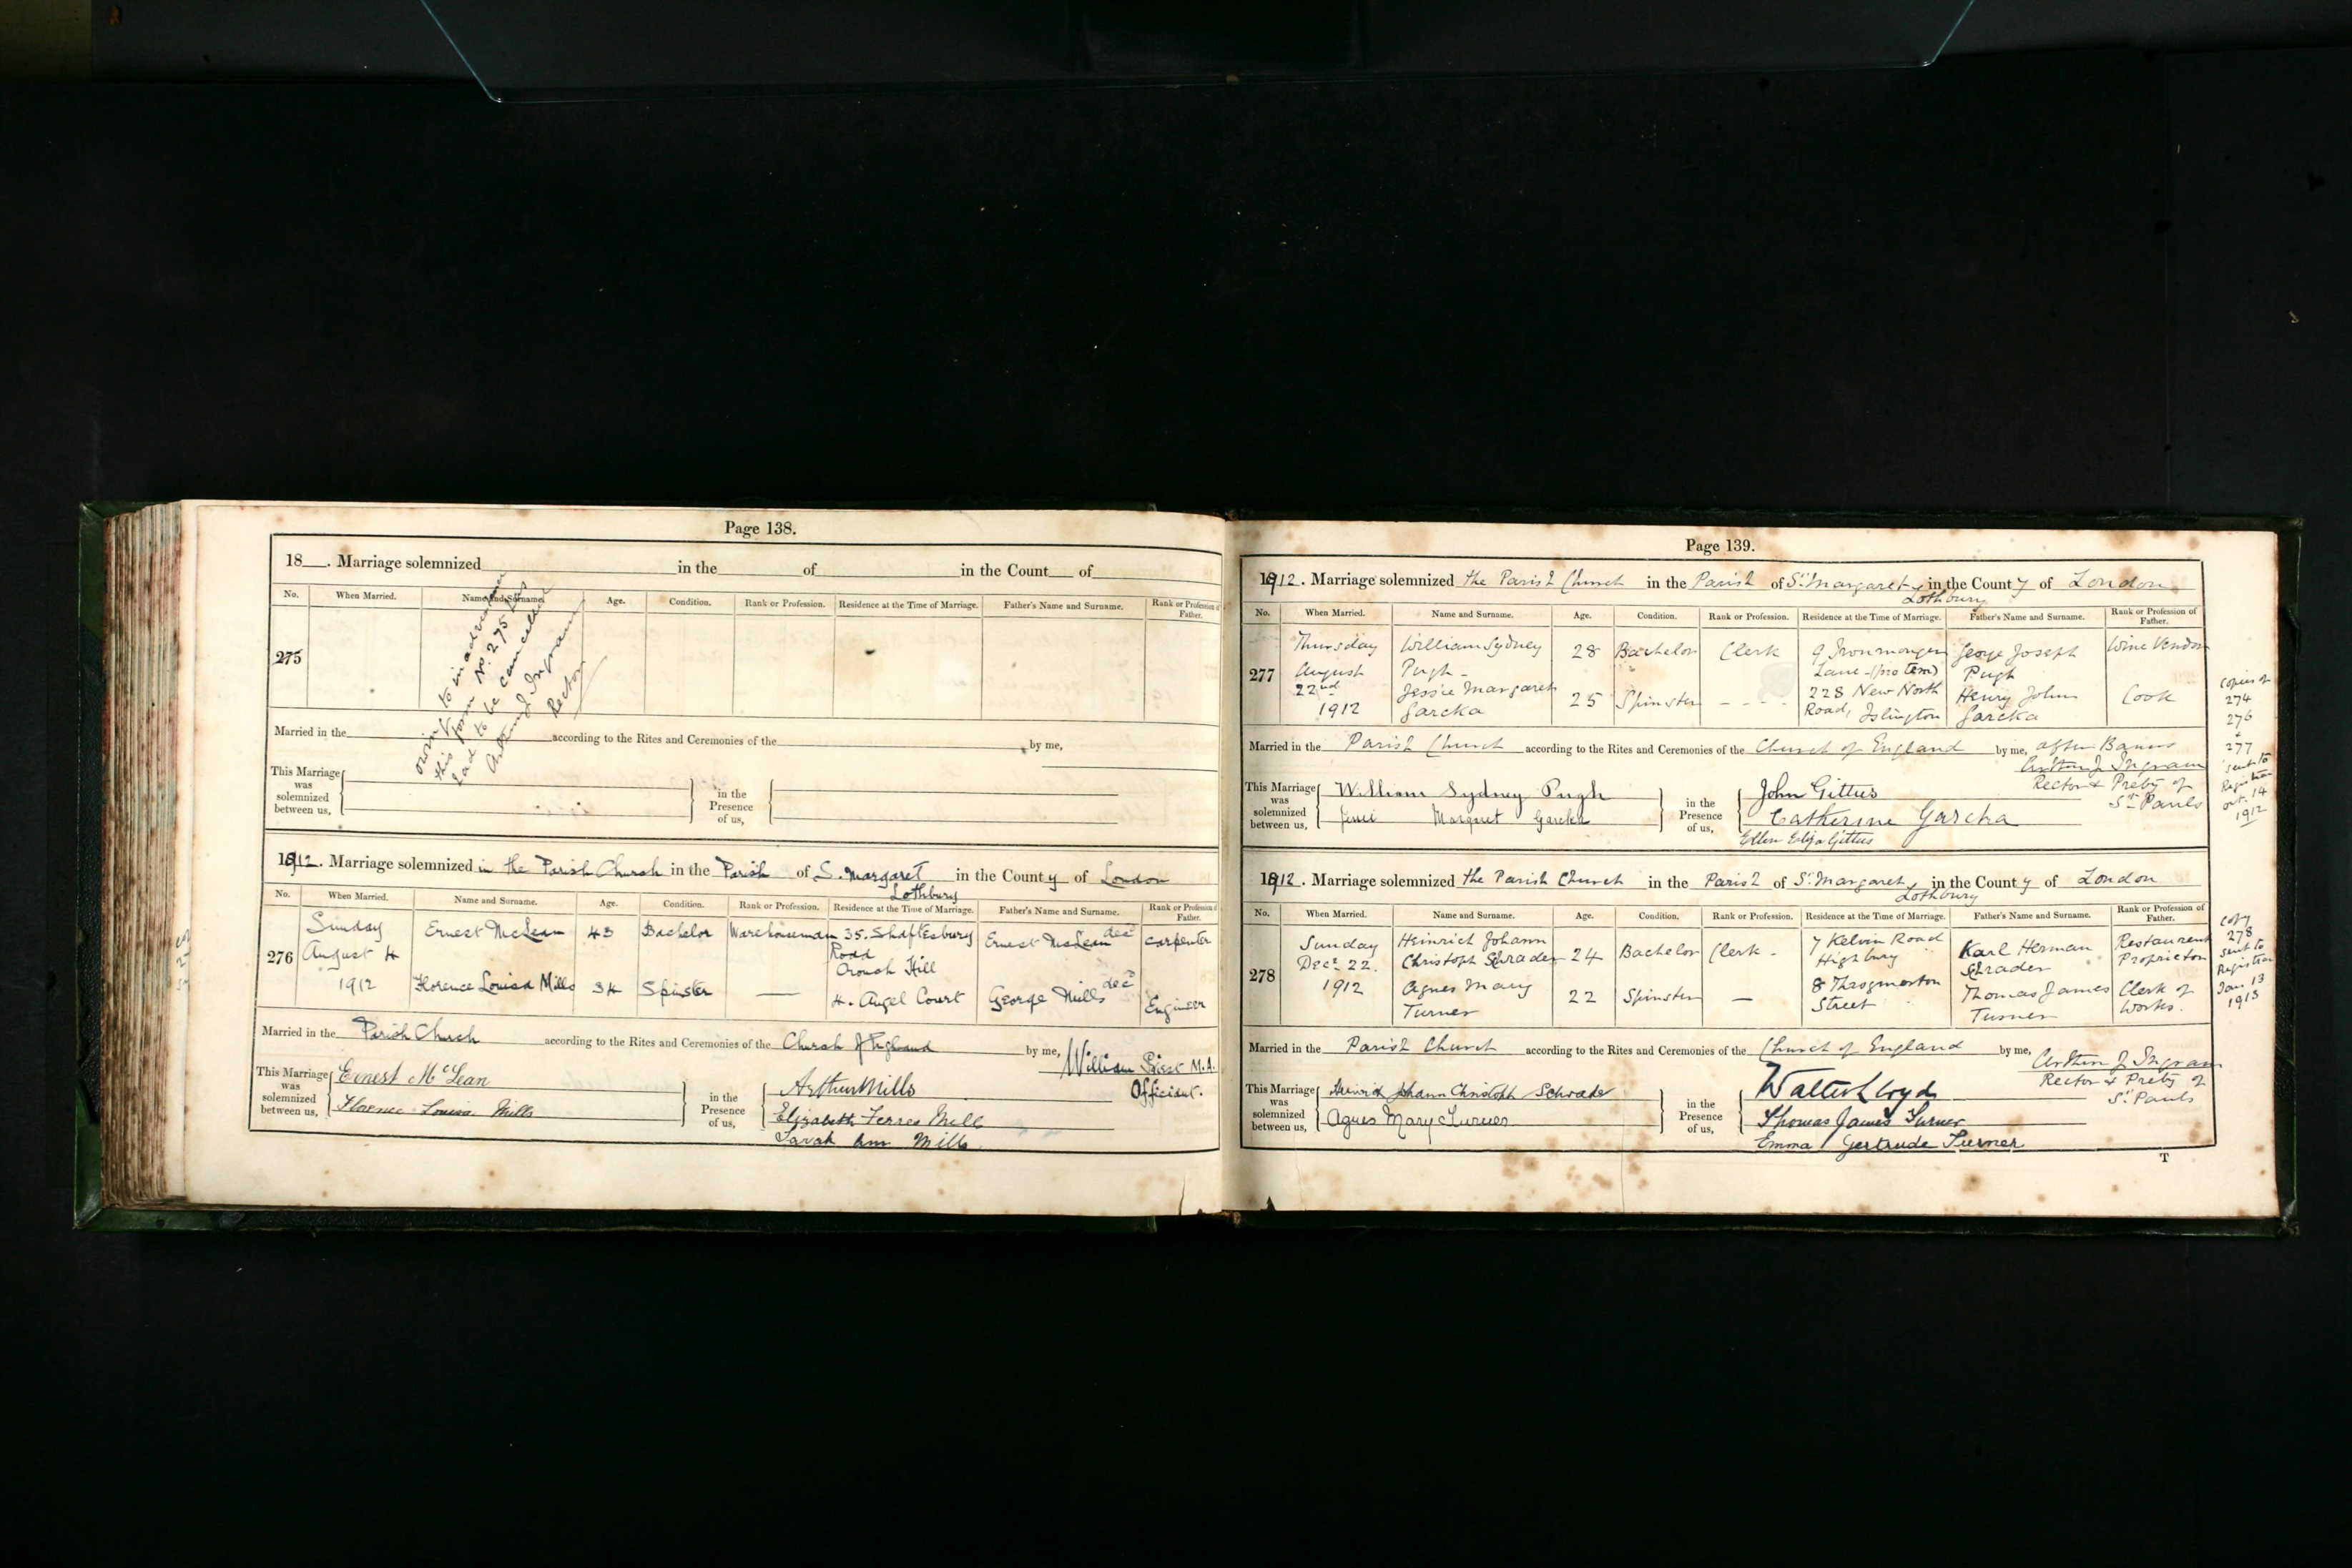 Page 138.
18 . Marriage solemnized in the of in the Count of
No. When Married. Name and Surname. Age. Condition. Rank or Profession. Residence at the Time of Marriage. Father's Name and Surname. Rank or Profession of Father.
275
Owing to inadvertence
this form No. 275 has
had to be cancelled
Arthur J Ingram
Rector
Married in the according to the Rites and Ceremonies of the by me,
This Marriage was solemnized between us, in the Presence of us,
1912. Marriage solemnized in the Parish Church in the Parish of S. Margaret Lothbury in the County of London
No. When Married. Name and Surname. Age. Condition. Rank or Profession. Residence at the Time of Marriage. Father's Name and Surname. Rank or Profession of Father.
276 Sunday August 4 1912
Ernest McLean 43 Bachelor Warehouseman 35. Shaftesbury Road Crouch Hill Ernest McLean decd Carpenter
Florence Louisa Mills 34 Spinster — 4. Angel Court George Mills decd Engineer
Married in the Parish Church according to the Rites and Ceremonies of the Church of England by me, William Priest M.A.
Officiant.
This Marriage was solemnized between us, Ernest McLean
Florence Louisa Mills
in the Presence of us, Arthur Mills
Elizabeth Mills
Sarah Ann Mills
Page 139.
1912. Marriage solemnized the Parish Church in the Parish of St. Margaret, Lothbury in the County of London
No. When Married. Name and Surname. Age. Condition. Rank or Profession. Residence at the Time of Marriage. Father's Name and Surname. Rank or Profession of Father.
277 Thursday August 22nd 1912
William Sydney Pugh 28 Bachelor Clerk 9 Ironmonger Lane (pro tem) George Joseph Pugh Wine Vendor
Jessie Margaret Garcka 25 Spinster - - - 228 New North Road, Islington Henry John Garcka Cook
Married in the Parish Church according to the Rites and Ceremonies of the Church of England by me, after Banns
Arthur J Ingram
Rector & Preby of
St Pauls
This Marriage was solemnized between us, William Sydney Pugh
Jessie Margaret Garcka
in the Presence of us, John Gittus
Catherine Garcka
Ellen Eliza Gittus
Copies of
274
276
&
277
sent to
Registrar
Oct. 14
1912
1912. Marriage solemnized the Parish Church in the Parish of St. Margaret, Lothbury in the County of London
No. When Married. Name and Surname. Age. Condition. Rank or Profession. Residence at the Time of Marriage. Father's Name and Surname. Rank or Profession of Father.
278 Sunday Decr. 22. 1912
Heinrich Johann Christoph Schrader 24 Bachelor Clerk - 7 Kelvin Road Highbury Karl Herman Schrader Restaurent Proprietor
Agnes Mary Turner 22 Spinster — 8 Throgmorton Street Thomas James Turner Clerk of Works.
Married in the Parish Church according to the Rites and Ceremonies of the Church of England by me, Arthur J Ingram
Rector & Preby of
St Pauls
This Marriage was solemnized between us, Heinrich Johann Christoph Schrader
Agnes Mary Turner
in the Presence of us, Walter Lloyd
Thomas James Turner
Emma Gertrude Turner
Copy
278
sent to
Registrar
Jan 13
1913
T